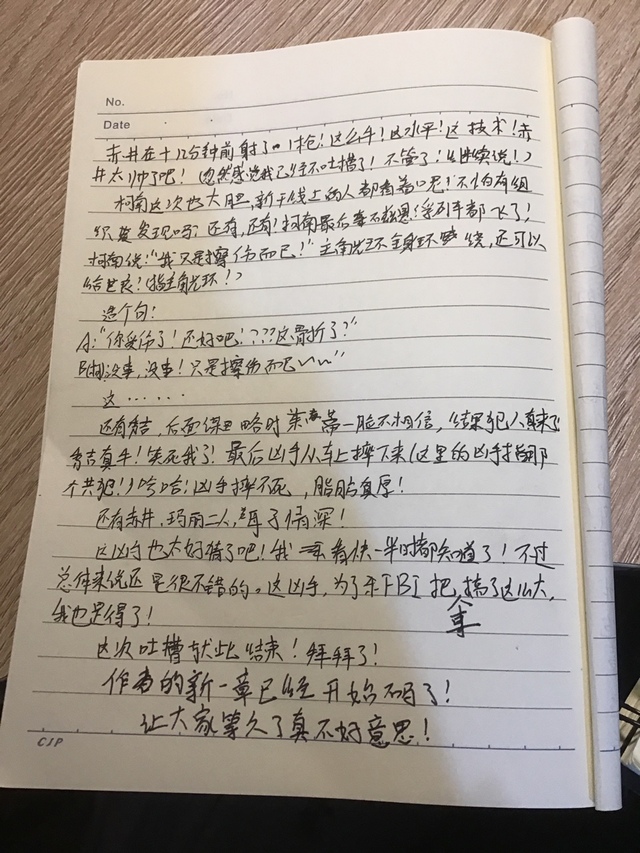 No.
Date
赤井在十几分钟前射了一枪！这么牛！这水平！这技术！赤
井太帅了吧！（忽然感觉我已经不吐槽了！不管了！继续说！）
柯南这次也大胆，新干线上的人都看着呢！不怕有组
织来发现吗？还有，还有！柯南最后毫不慈悲！系列车都飞了！
柯南说："我只是擦伤而已！"主角光环全身环绕，还可以
给世良！（指主角光环！）
造个句：
A："你受伤了！还好吧！？？？这骨折了？"
B(柯)没事，没事！只是擦伤而已~~"
这……
还有秀吉，后面谋略时茱蒂一脸不相信，结果犯人真来了
秀吉真牛！笑死我了！最后凶手从车上摔下来（这里的凶手指那
个共犯！）哈哈！凶手摔不死，脂肪真厚！
还有赤井，玛丽二人，母子情深！
这凶手也太好猜了吧！我看快一半时都知道了！不过
总体来说还是很不错的。这凶手，为了杀FBI把，搞了这么大，
拿
我也是得了！
这次吐槽就此结束！拜拜了！
作者的新一章已经开始码了！
让大家等久了真不好意思！
CJP